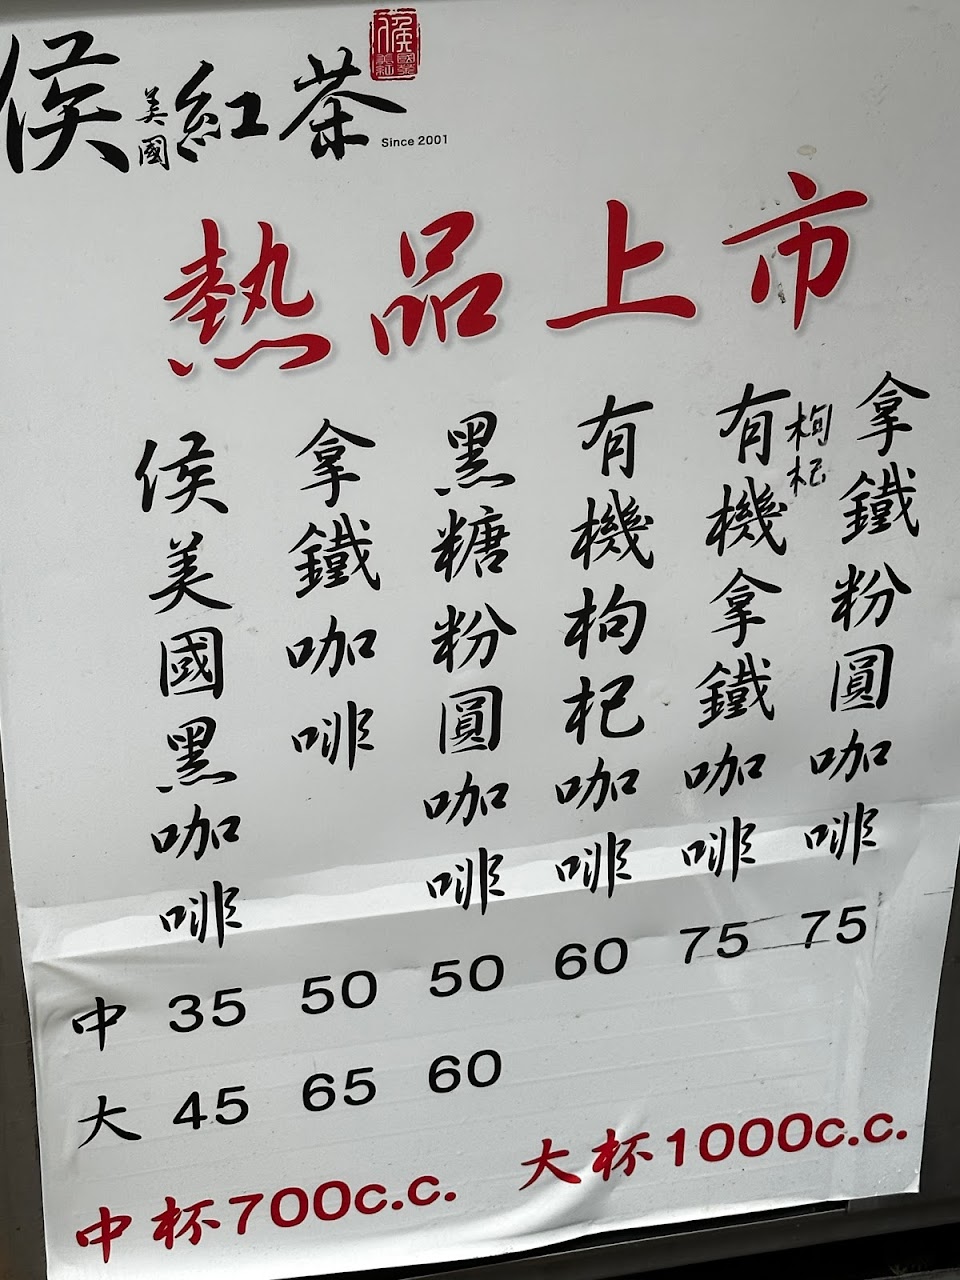 侯美國紅茶
Since 2001
熱品上市
侯美國黑咖啡
拿鐵咖啡
黑糖粉圓咖啡
有機枸杞咖啡
有機枸杞拿鐵咖啡
拿鐵粉圓咖啡
中 35 50 50 60 75 75
大 45 65 60
中杯700c.c. 大杯1000c.c.